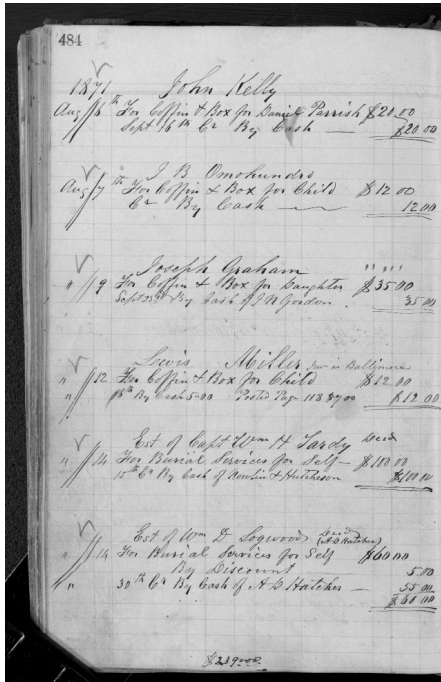 484
1871 John Kelly
Aug 6th For Coffin & Box for Daniel Parrish $20.00
Sept 16th Cr By Cash — $20.00
J B Omohundro
Aug 7th For Coffin & Box for Child $12.00
Cr By Cash — 12.00
Joseph Graham " " " "
" 9 For Coffin & Box for Daughter $35.00
Sept 25th By Cash of J N Gordon 35.00
Lewis Miller Jew in Baltimore
" 12 For Coffin & Box for Child $12.00
" By Cash 5.00 Posted Page 113 $7.00 $12.00
Est of Capt Wm H Tardy Decd
" 14 For Burial Services for Self — $100.00
15th Cr By Cash of & Hutcheson $100.00
Est of Wm D Logwood Decd
(A D Hatcher)
" 14 For Burial Services for Self $60.00
By Discount 5.00
" 30th Cr By Cash of A D Hatcher — 55.00
$60.00
$239.00